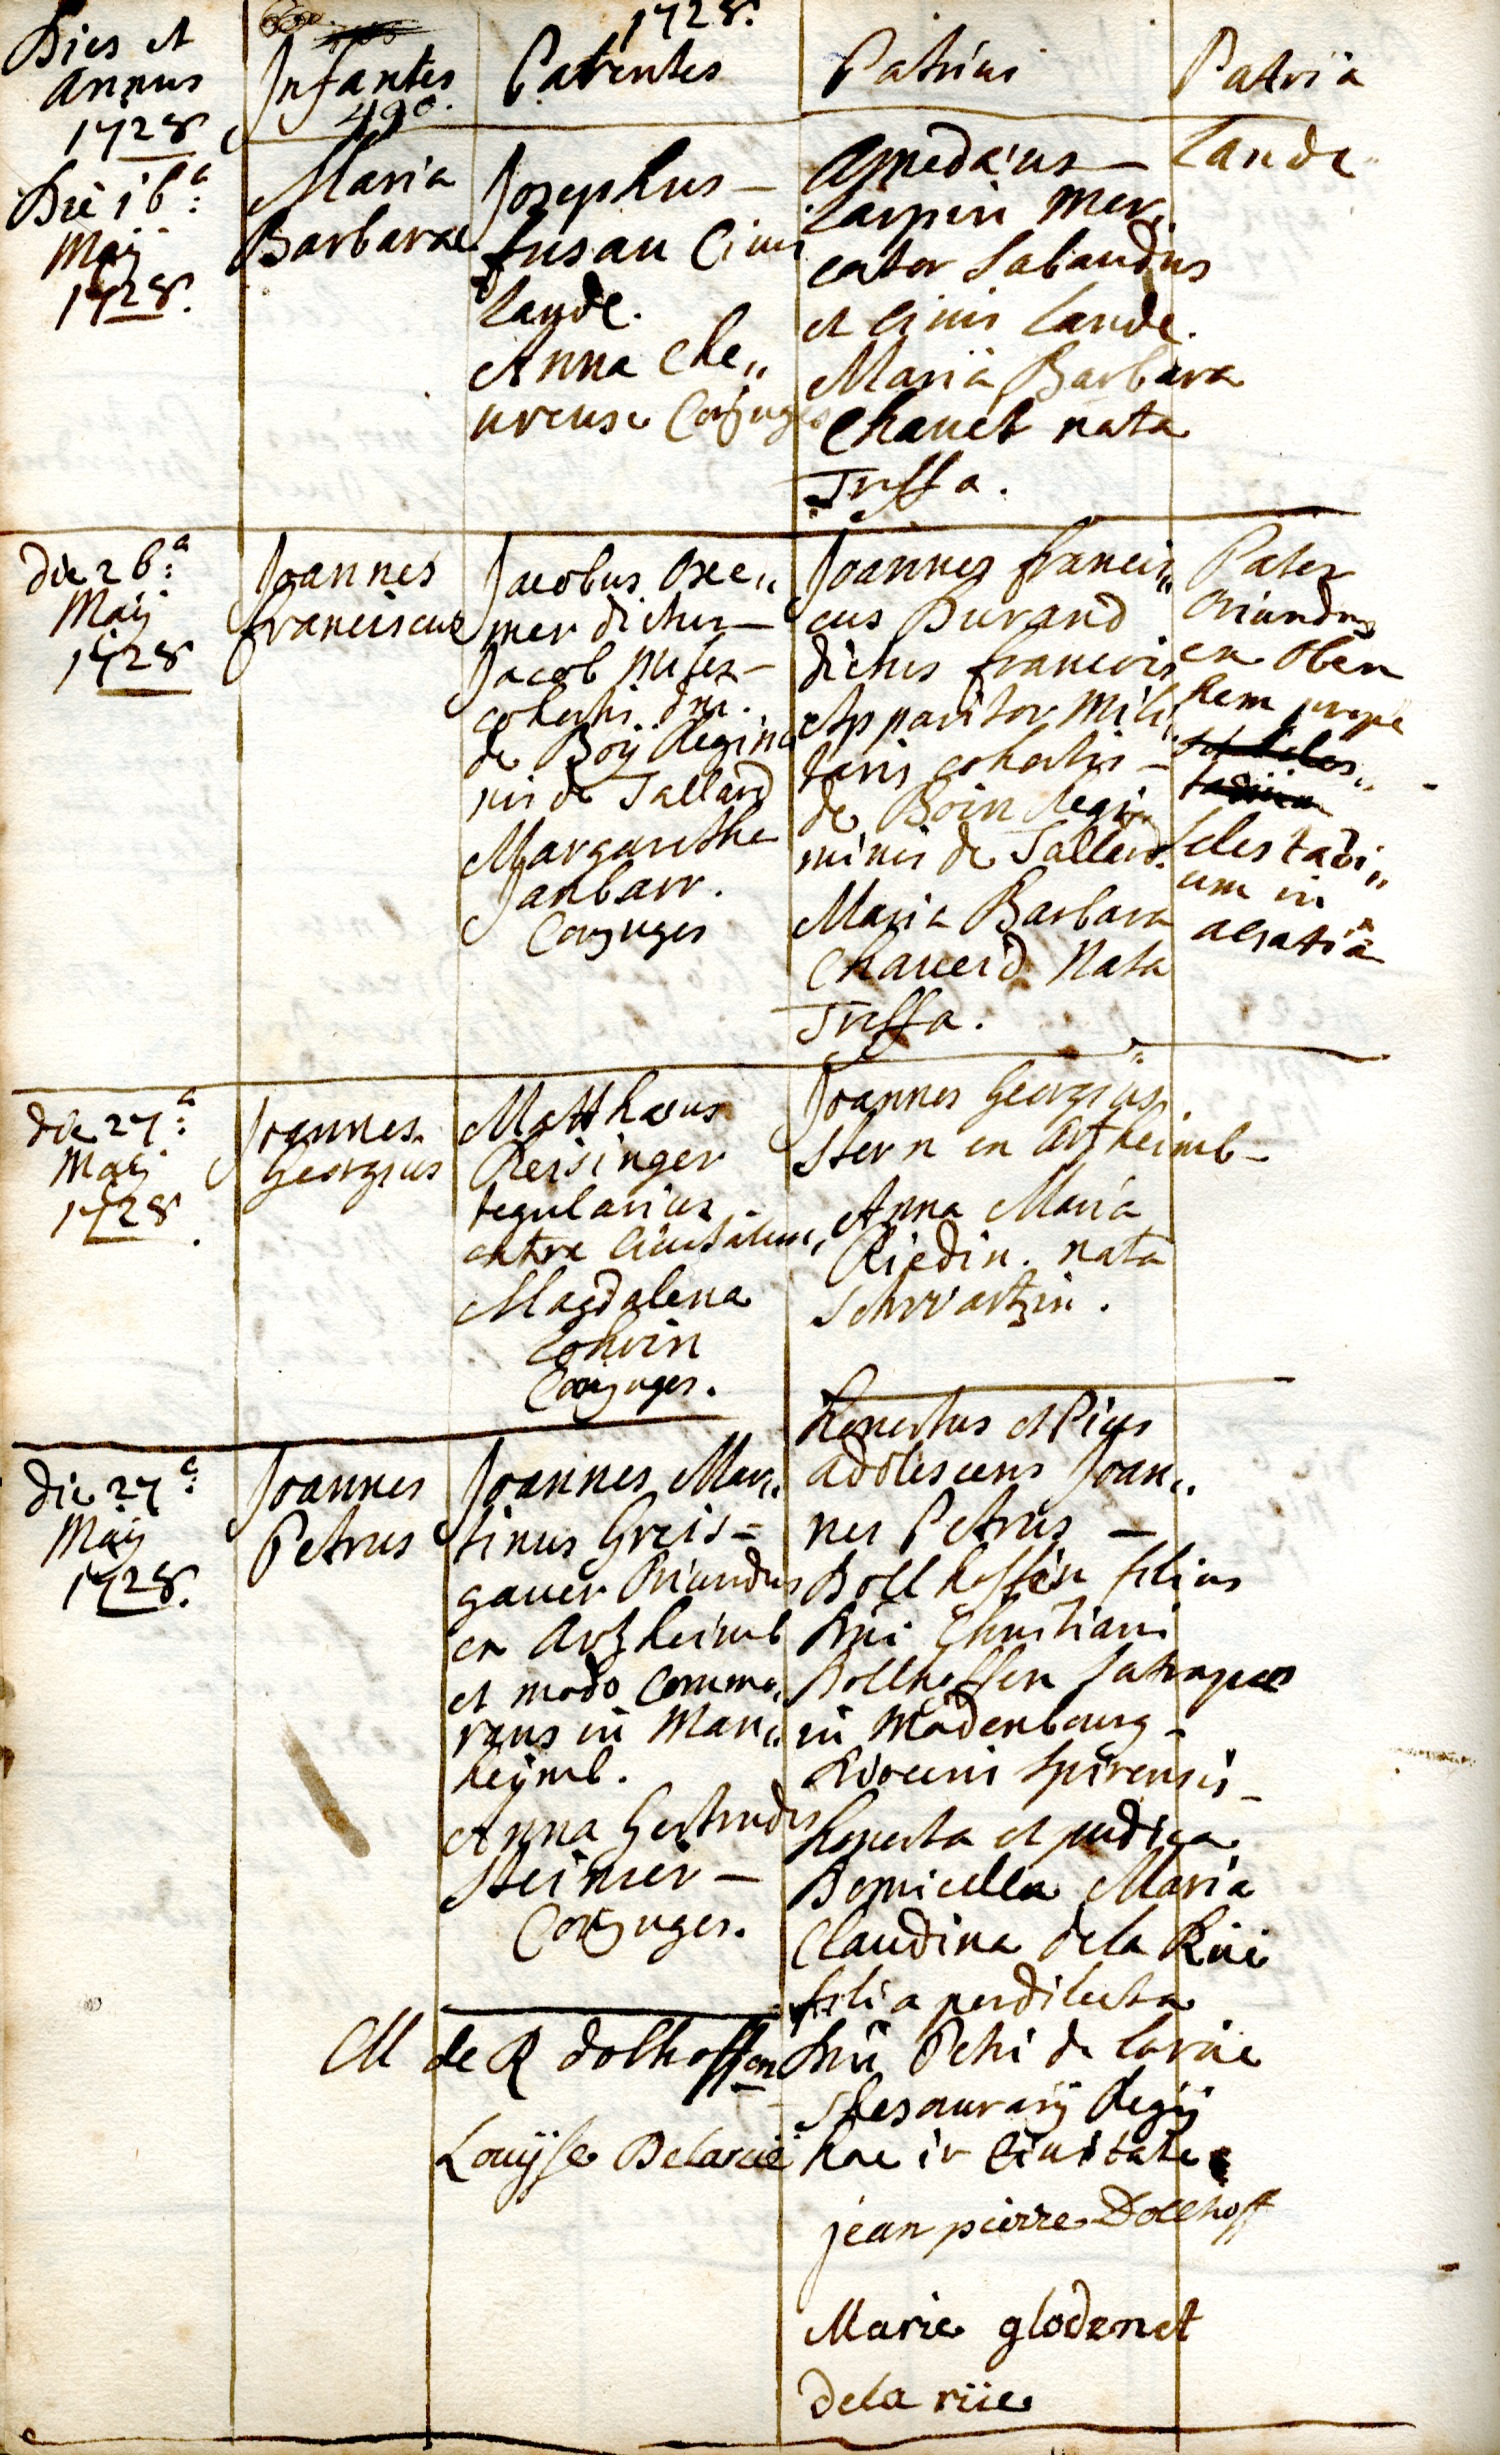 1728.
Dies et
Annus
1728
Infantes
490.
Parentes
Patrini
Patria
Die 16a:
Maij
1728.
Maria
Barbara
Josephus –
Susan Civis
Landc.
Anna Che„
vreuse Conjuges
Amedaeus –
Larpin Mer„
cator Sabaudus
et Civis Landc.
Maria Barbara
Chauet nata
Treffa.
Landc.
die 26a:
Maij
1728
Joannes
franciscus
Jacobus
mer dictus –
Jacob miles –
cohortis dni.
de Boij Regimi
nis de Tallard
Margaretha
Janbarr.
Conjuges
Joannes francis„
cus Durand
dictus francois
Apparitor Mili„
taris cohortis –
de Boin Regi„
minis de Tallard.
Maria Barbara
Chaueid Nata
Treffa.
Pater
oriundus
ex Oben
hem prope
selestadi„
um in
alsatiâ
die 27a:
Maij
1728.
Joannes
Georgius
Matthaeus
Reisinger
tegularius
extra Civitatem,
Magdalena
Lohrin
Conjuges.
Joannes Georgius
Stern ex Artzheimb –
Anna Maria
Riedin. nata
Schwartzin.
die 27a:
Maij
1728.
Joannes
Petrus
Joannes Mar„
tinus Greis=
gauer Oriundus
ex Artzheimb
et modo commo„
rans in Man„
heijmb.
Anna Gertrudis
Steinier –
Conjuges.
honestus et Pius
adolescens Joan„
nes Petrus –
Dollhoffen filius
Dni Christiani
Dollhoffen Satrapae
in Madenbourg –
Dioecesis Spirensis –
honesta et pudica
Domicella Maria
Claudina de la Rüe
filia perdilecta
Dni Petri de Larüe
Thesaurarij Regij
hac in Civitate
M de R dolhoffen
Louijse Delarüe
jean pierre Dollhoff
Marie glodenet
dela rüe